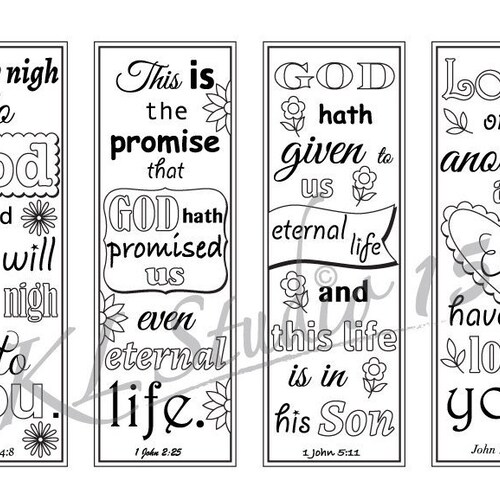 nigh
God
will
nigh
to
you.
4:8
This is
the
promise
that
GOD hath
promised
us
even
eternal
life.
1 John 2:25
GOD
hath
given to
us
eternal
life
and
this life
is in
his Son
1 John 5:11
have
you
John
KL Studio 15
©